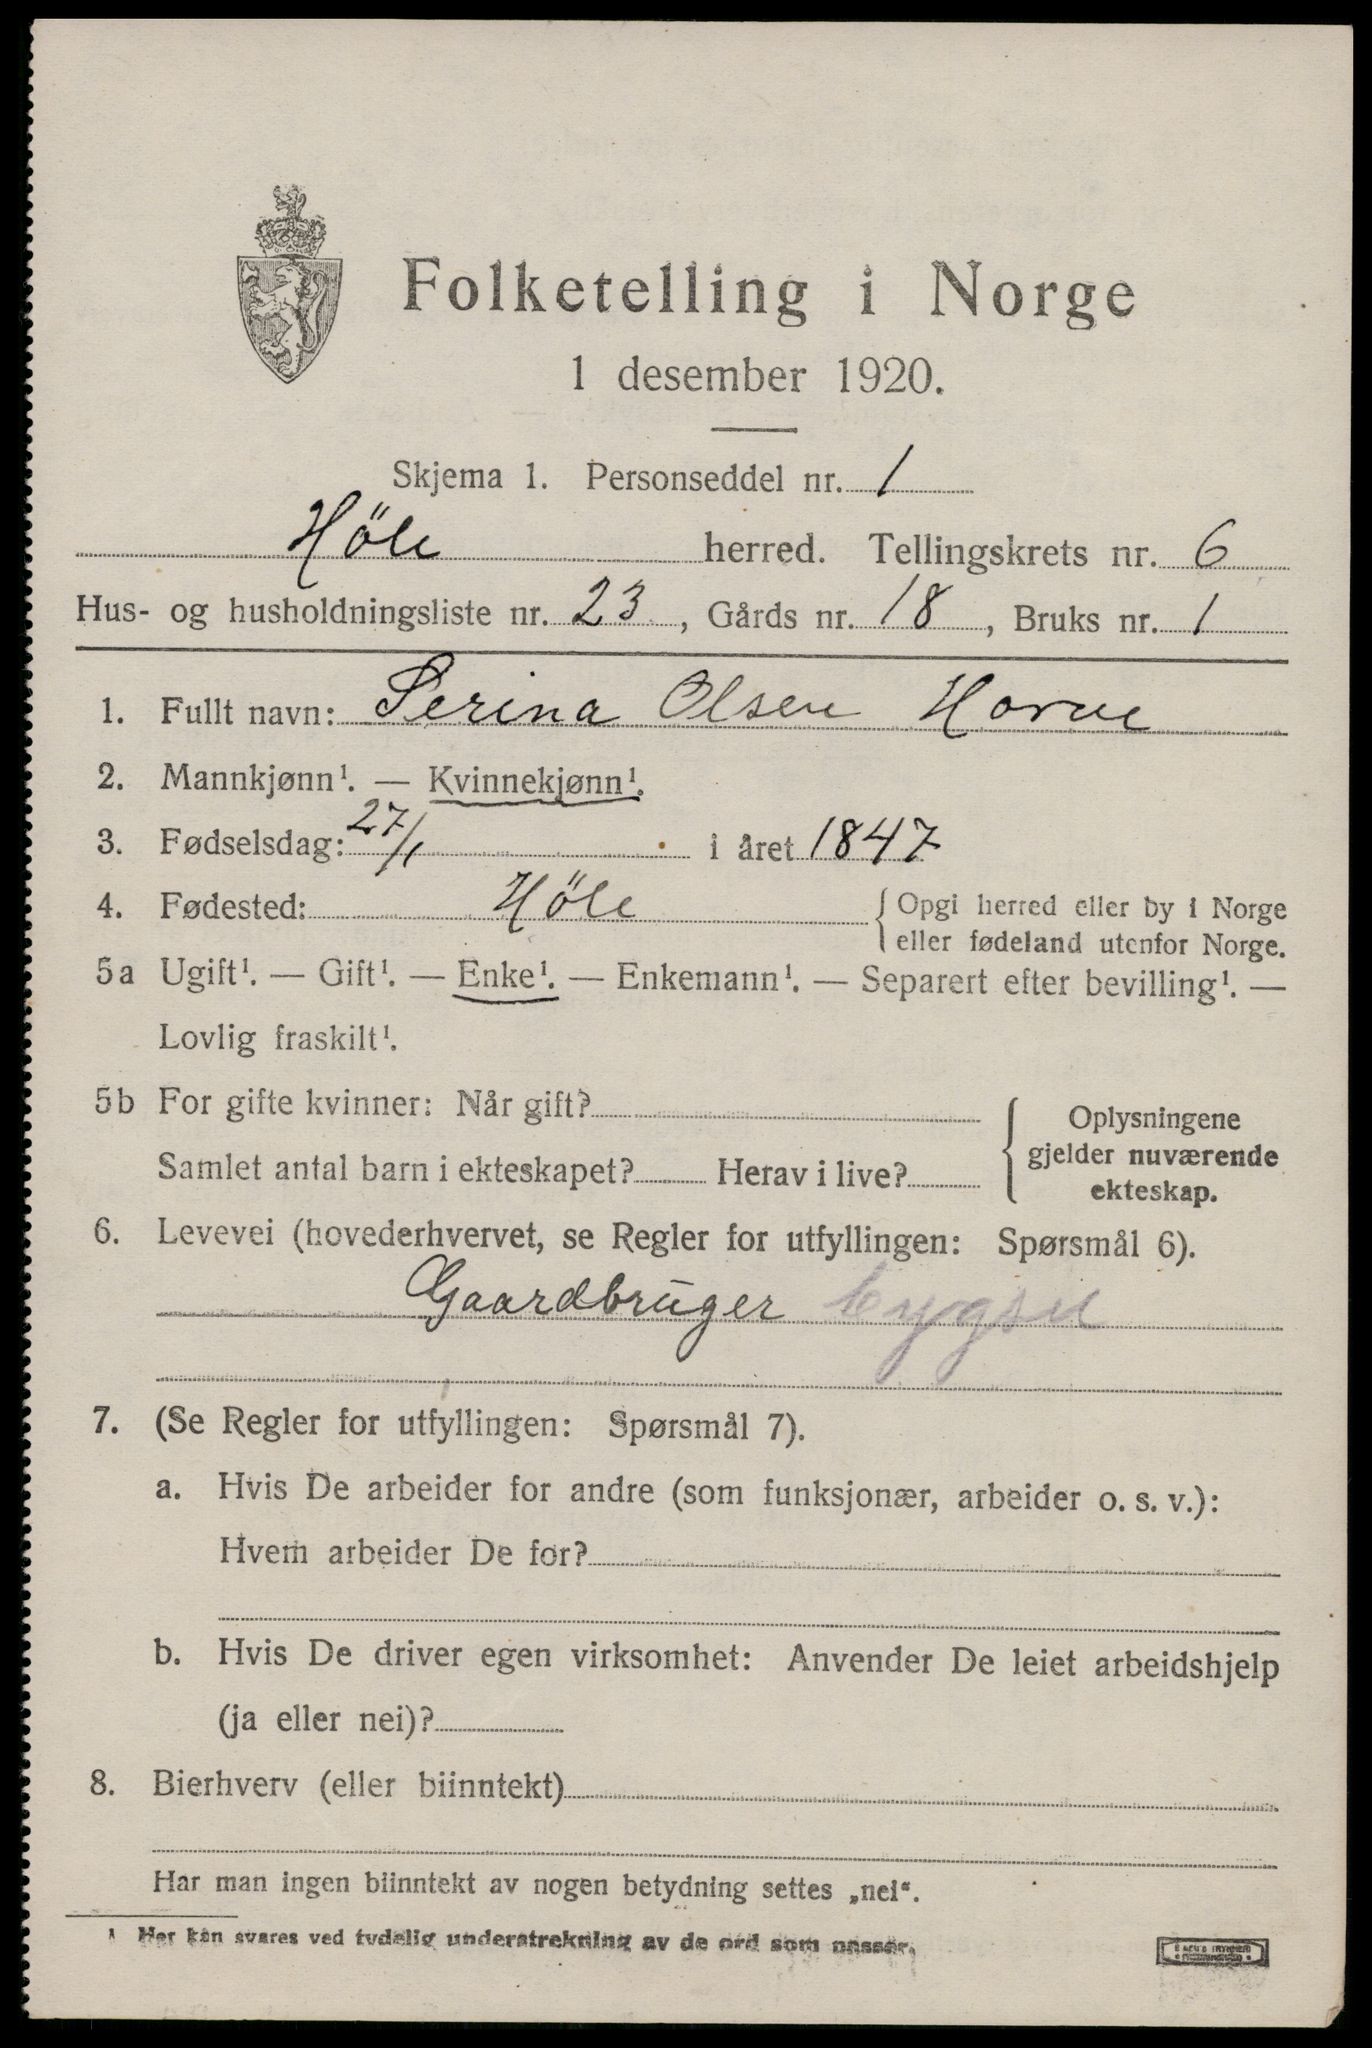 Folketelling i Norge
1 desember 1920.
Skjema 1. Personseddel nr. 1
Höle herred. Tellingskrets nr. 6
Hus- og husholdningsliste nr. 23, Gårds nr. 18, Bruks nr. 1
1. Fullt navn: Serina Olsen Horve
2. Mannkjønn¹. — Kvinnekjønn¹.
3. Fødselsdag: 27/1 i året 1847
4. Fødested: Höle {Opgi herred eller by i Norge
eller fødeland utenfor Norge.
5a Ugift¹. — Gift¹. — Enke¹. — Enkemann¹. — Separert efter bevilling¹. —
Lovlig fraskilt¹.
5b For gifte kvinner: Når gift?
Samlet antal barn i ekteskapet? Herav i live?
Oplysningene
gjelder nuværende
ekteskap.
6. Levevei (hovederhvervet, se Regler for utfyllingen: Spørsmål 6).
Gaardbruger
7. (Se Regler for utfyllingen: Spørsmål 7).
a. Hvis De arbeider for andre (som funksjonær, arbeider o. s. v.):
Hvem arbeider De for?
b. Hvis De driver egen virksomhet: Anvender De leiet arbeidshjelp
(ja eller nei)?
8. Bierhverv (eller biinntekt)
Har man ingen biinntekt av nogen betydning settes „nei“.
¹ Her kan svares ved tydelig understrekning av de ord som passer.